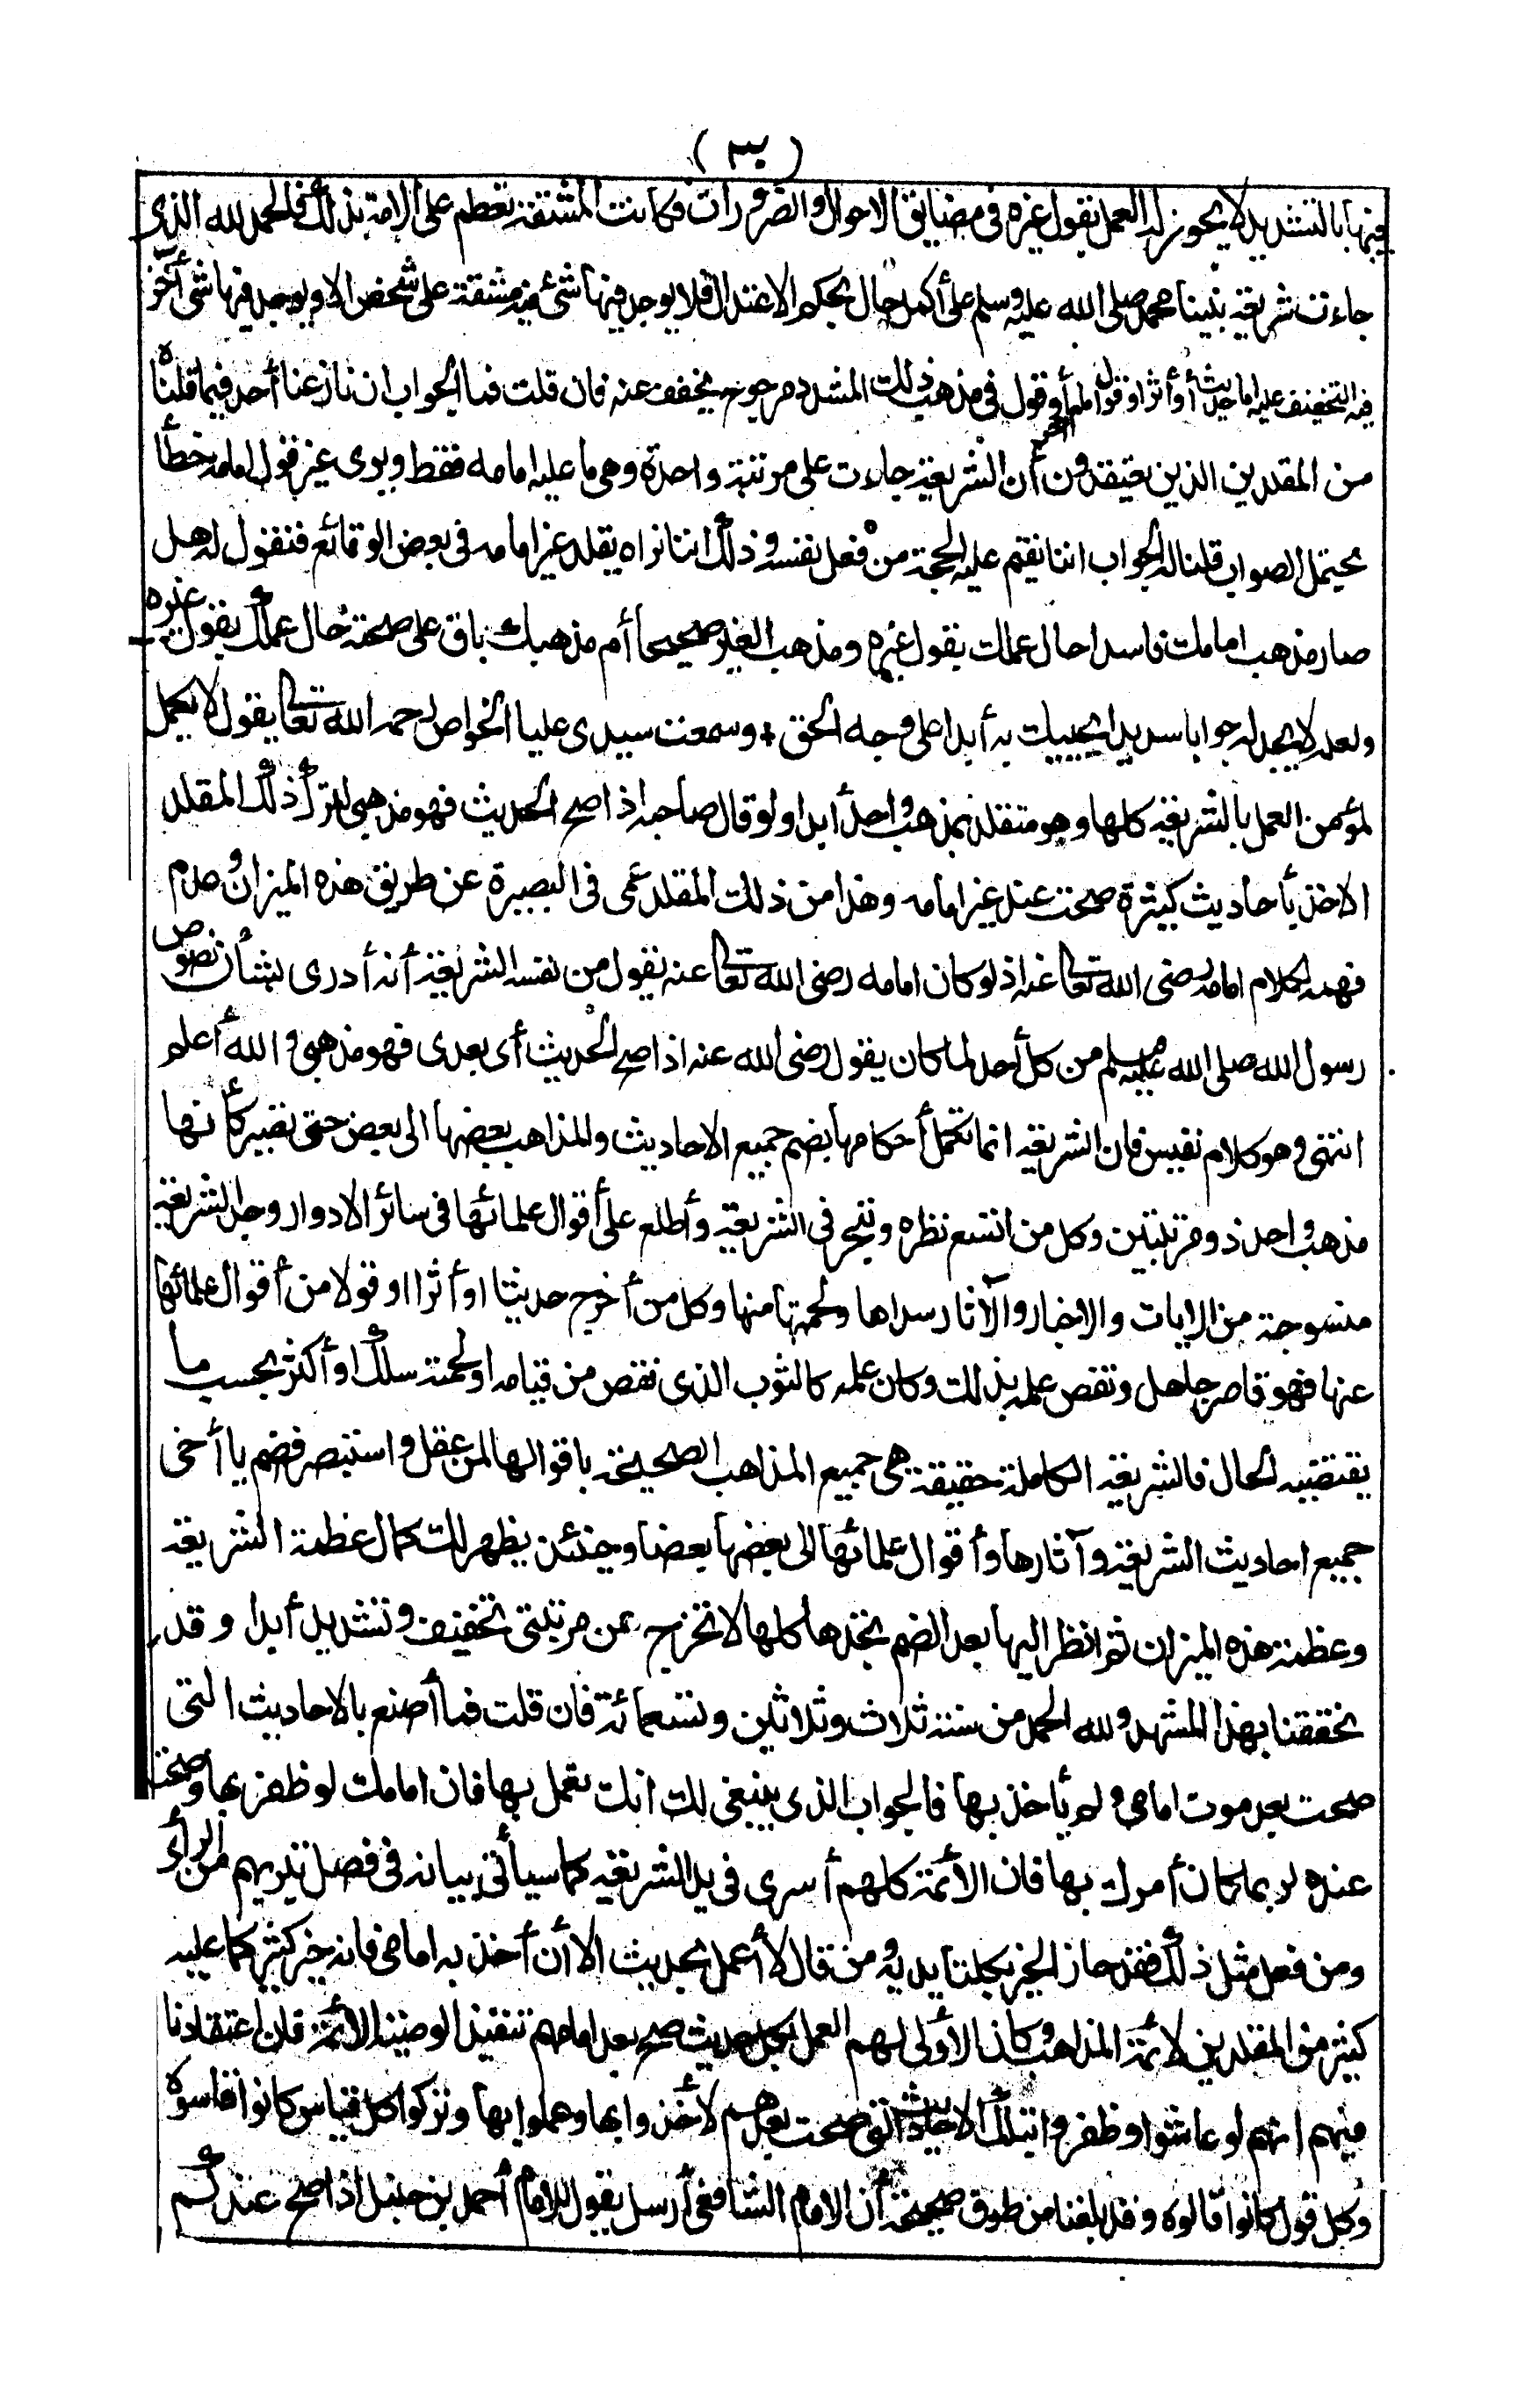 (٣٠)
فيها بالتشديد لا يجوز له العمل بقول غيره فى مضايق الاحوال والضرورات فكانت المشقة تعظم على الامة بذلك فالحمد لله الذى
جاءت شريعة نبينا محمد صلى الله عليه وسلم على أكمل حال بحكم الاعتدال فلا يوجد فيها شئ فيه مشقة على شخص الا ويوجد فيها شئ آخر
فيه التخفيف عليه اما حديث أو أثر او قول امام آخر أو قول فى مذهب ذلك المشدد مرجوح يخفف عنه فان قلت فما الجواب ان نازعنا أحد فيما قلناه
من المقلدين الذين يعتقدون أن الشريعة جاءت على مرتبة واحدة وهى ما عليه امامه فقط ويرى غير قول امامه خطأ
يحتمل الصواب قلنا له الجواب اننا نقيم عليه الحجة من فعل نفسه وذلك اننا نراه يقلد غير امامه فى بعض الوقائع فنقول له هل
صار مذهب امامك فاسدا حال عملك بقول غيره ومذهب الغير صحيحا أم مذهبك باق على صحته حال عملك بقول غيره
ولعله لا يجد له جوابا سديدا يجيبك به أبدا على وجه الحق + وسمعت سيدى عليا الخواص رحمه الله تعالى يقول لا يكمل
لمؤمن العمل بالشريعة كلها وهو متقلد بمذهب واحد أبدا ولو قال صاحبه اذا صح الحديث فهو مذهبى لترك ذلك المقلد
الاخذ بأحاديث كثيرة صحت عند غير امامه وهذا من ذلك المقلد عمى فى البصيرة عن طريق هذه الميزان وعدم
فهمه لكلام امامه رضى الله تعالى عنه اذ لو كان امامه رضى الله تعالى عنه يقول من نفسه الشريعة أنه أدرى بشأن نصوص
رسول الله صلى الله عليه وسلم من كل أحد لما كان يقول رضى الله عنه اذا صح الحديث أى بعدى فهو مذهبى والله أعلم
انتهى وهو كلام نفيس فان الشريعة انما تكمل أحكامها بضم جميع الاحاديث والمذاهب بعضها الى بعض حتى تصير كأنها
مذهب واحد ذو مرتبتين وكل من اتسع نظره وتبحر فى الشريعة وأطلع على أقوال علمائها فى سائر الادوار وجد الشريعة
منسوجة من الايات والاخبار والآثار سداها ولحمتها منها وكل من أخرج حديثا او أثرا او قولا من أقوال علمائها
عنها فهو قاصر جاهل ونقص علمه بذلك وكان علمه كالثوب الذى نقص من قيامه او لحمته سلك او أكثر بحسب ما
يقتضيه الحال فالشريعة الكاملة حقيقة هى جميع المذاهب الصحيحة باقوالها لمن عقل واستبصر فضم يا أخى
جميع احاديث الشريعة وآثارها وأقوال علمائها الى بعضها بعضا وحينئذ يظهر لك كمال عظمة الشريعة
وعظمة هذه الميزان ثم انظر اليها بعد الضم تجدها كلها لا تخرج عن مرتبتى تخفيف وتشديد أبدا وقد
تحققنا بهذا المشهد ولله الحمد من سنة ثلاث وثلاثين وتسعمائة فان قلت فما أصنع بالاحاديث التى
صحت بعد موت امامى ولم يأخذ بها فالجواب الذى ينبغى لك انك تعمل بها فان امامك لو ظفر بها وصحت
عنده لربما كان أمرك بها فان الأئمة كلهم أسرى فى يد الشريعة كما سيأتى بيانه فى فصل تبريهم من الرأى
ومن فعل مثل ذلك فقد حاز الخير بكلتا يديه ومن قال لا أعمل بحديث الا أن أخذ به امامى فاته خير كثير كما عليه
كثير من المقلدين لائمة المذاهب وكان الأولى لهم العمل بكل حديث صح بعد امامهم تنفيذا لوصية الأئمة فان اعتقادنا
فيهم انهم لو عاشوا وظفروا بتلك الاحاديث التى صحت بعدهم لأخذوا بها وعملوا بها وتركوا كل قياس كانوا قاسوه
وكل قول كانوا قالوه وقد بلغنا من طرق صحيحة أن الامام الشافعى أرسل يقول للامام أحمد بن حنبل اذا صح عندكم